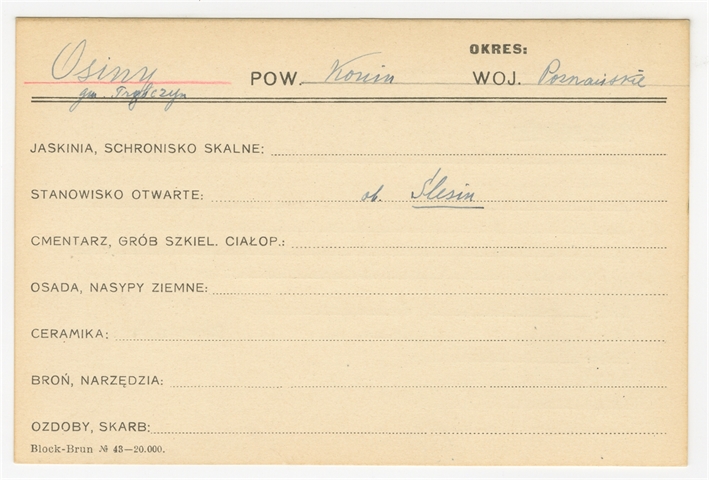 OKRES:
Osiny POW. Konin WOJ. Poznańskie
gm. Trąbczyn
JASKINIA, SCHRONISKO SKALNE:
STANOWISKO OTWARTE: ob. Ślesin
CMENTARZ, GRÓB SZKIEL. CIAŁOP.:
OSADA, NASYPY ZIEMNE:
CERAMIKA:
BROŃ, NARZĘDZIA:
OZDOBY, SKARB:
Block-Brun № 43—20.000.